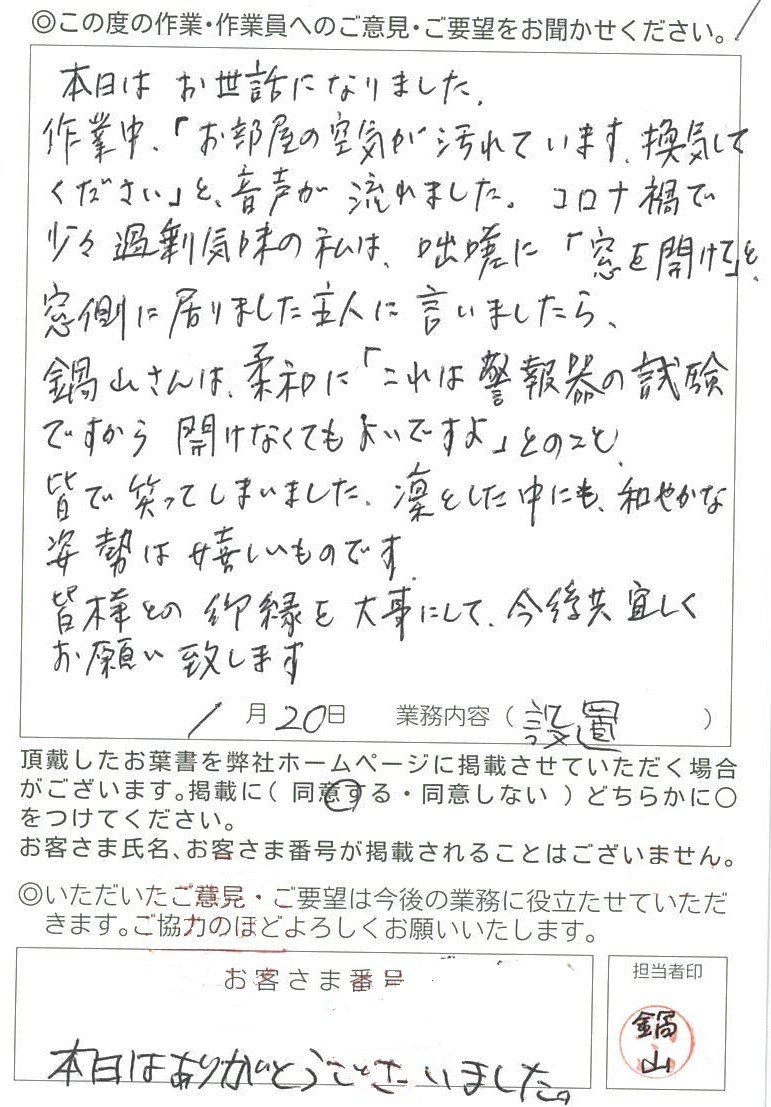 ◎この度の作業・作業員へのご意見・ご要望をお聞かせください。
本日は お世話になりました。
作業中、「お部屋の空気が汚れています、換気して
ください」と、音声が 流れました。コロナ禍で
少々過剰気味の私は、咄嗟に「窓を開けて」と、
窓側に居りました主人に言いましたら、
鍋山さんは、柔和に「これは警報器の試験
ですから 開けなくてもよいですよ」とのこと、
皆で笑ってしまいました。凜とした中にも、和やかな
姿勢は嬉しいものです。
皆様との御縁を大事にして、今後共宜しく
お願い致します
1月20日 業務内容(設置)
頂戴したお葉書を弊社ホームページに掲載させていただく場合
がございます。掲載に( 同意する・同意しない )どちらかに○
をつけてください。
お客さま氏名、お客さま番号が掲載されることはございません。
◎いただいたご意見・ご要望は今後の業務に役立たせていただ
きます。ご協力のほどよろしくお願いいたします。
お客さま番号
本日はありがとうございました。
担当者印
鍋山